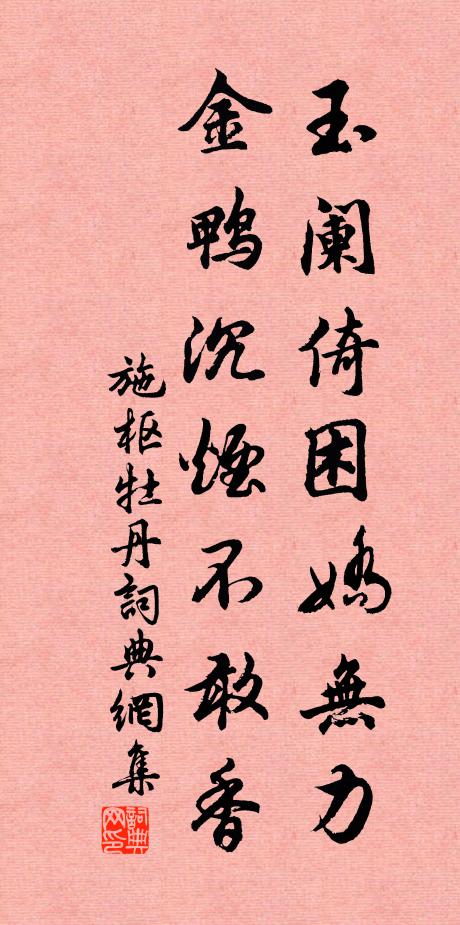 玉阑倚困娇無力
金鸭沉煙不敢香
施枢牡丹詞典網集
詞典
网印